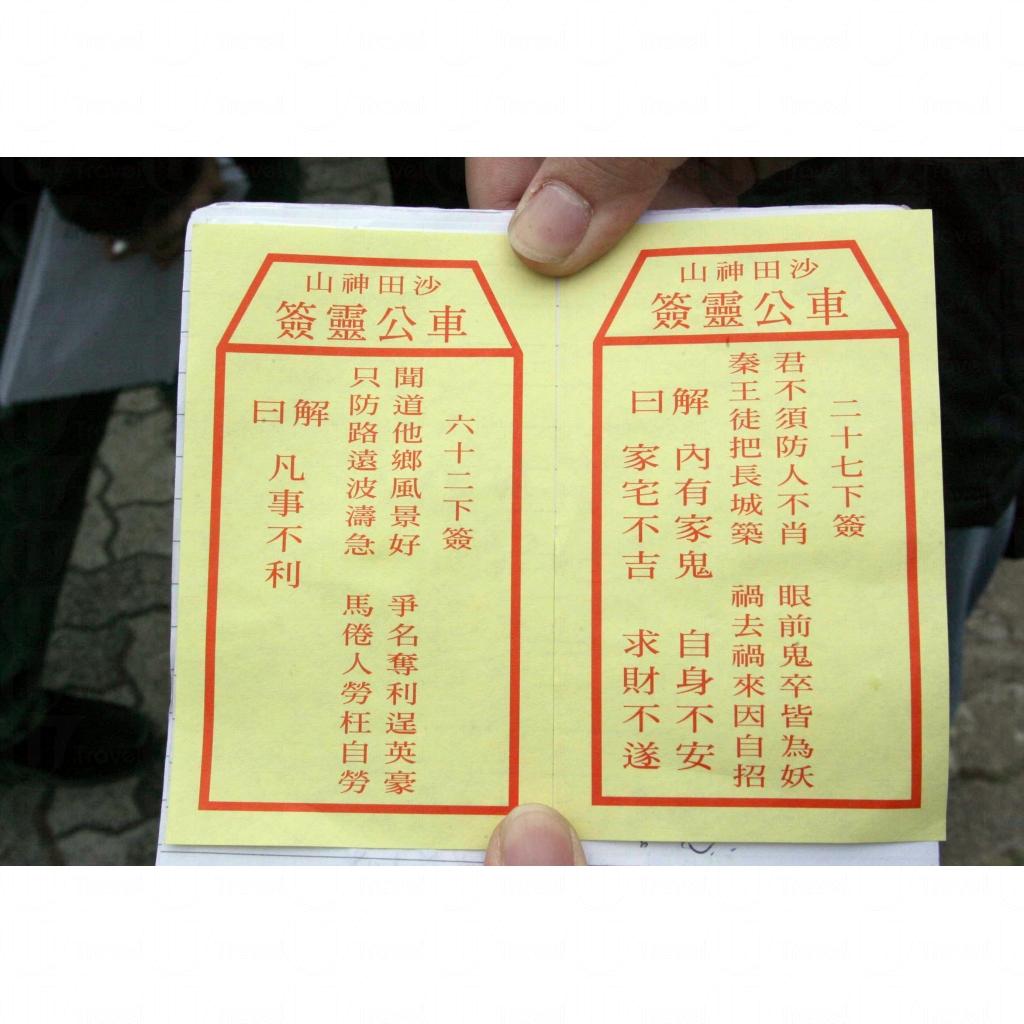 沙田神山
車公靈簽
二十七下簽
君不須防人不肖 眼前鬼卒皆為妖
秦王徒把長城築 禍去禍來因自招
解曰
內有家鬼 自身不安
家宅不吉 求財不遂
沙田神山
車公靈簽
六十二下簽
聞道他鄉風景好 爭名奪利逞英豪
只防路遠波濤急 馬倦人勞枉自勞
解曰
凡事不利